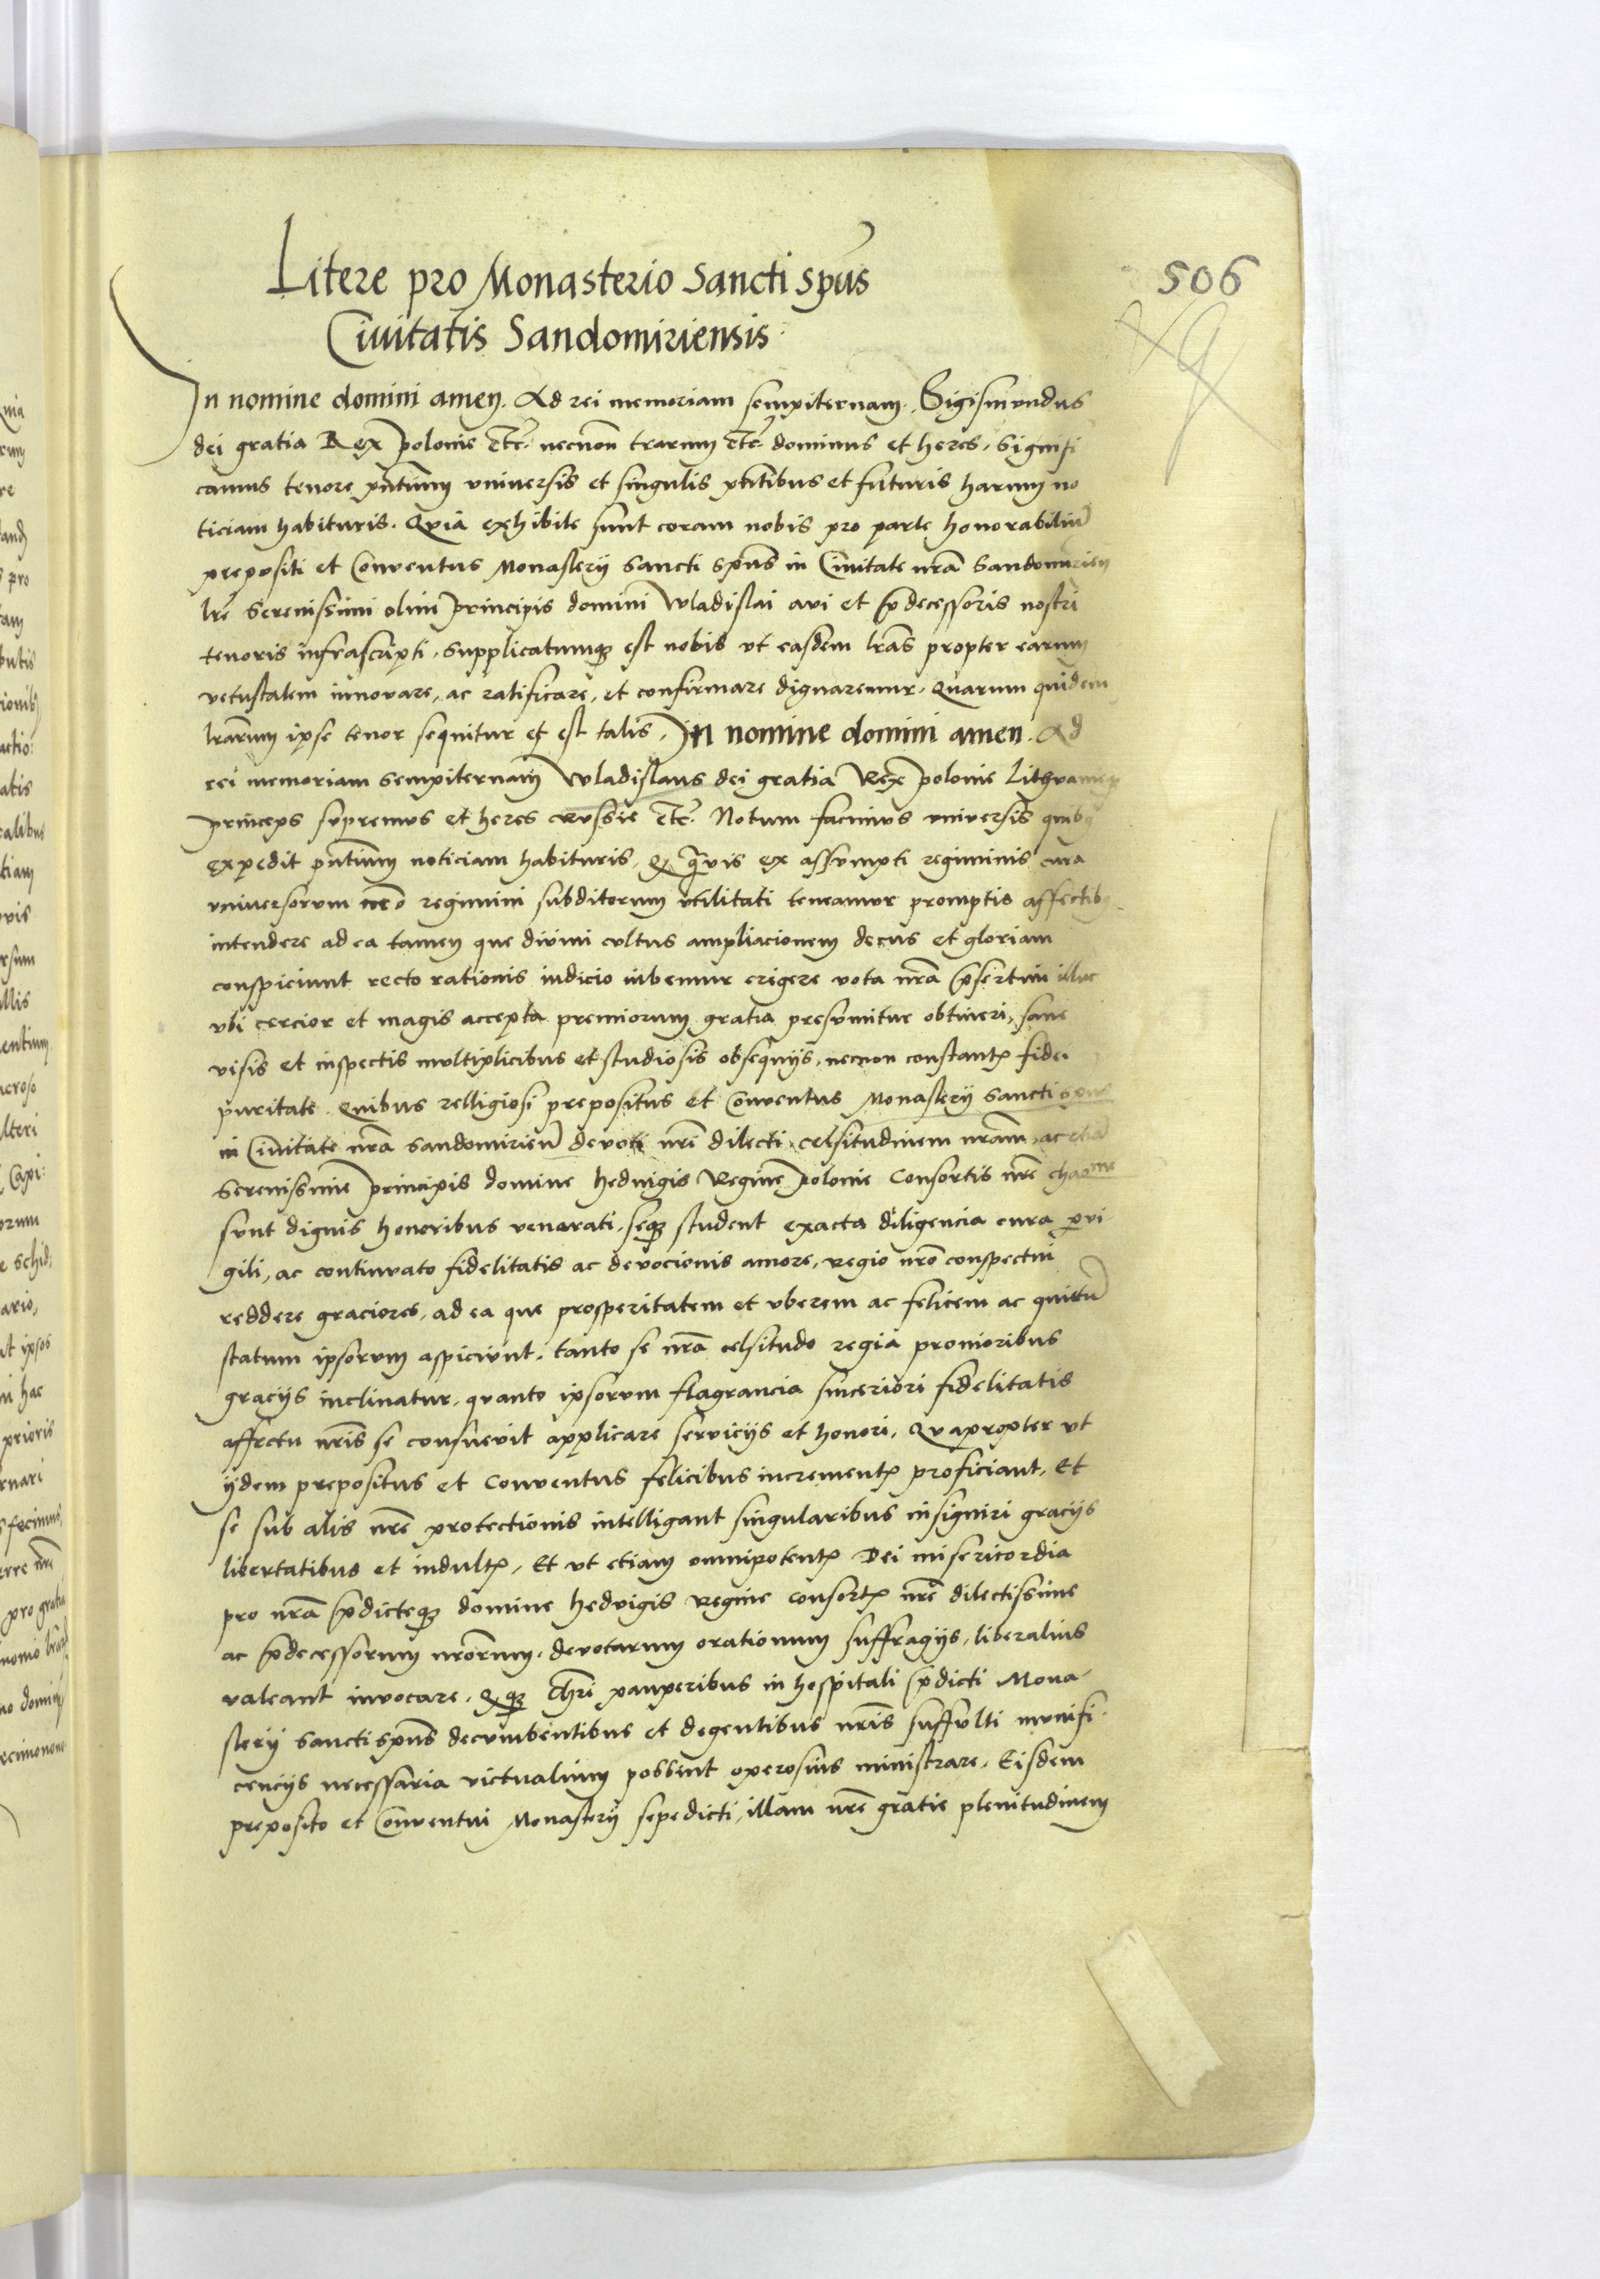 506
Litere pro Monasterio Sancti spūs
Ciuitatis Sandomiriensis
In nomine domini amen. Ad rei memoriam sempiternam. Sigismundus
dei gratia Rex polonie etc. necnon trarum etc. dominus et heres, signifi
camus tenore pntium vniuersis et singulis pntibus et futuris harum no
ticiam habituris. Quia exhibite sunt coram nobis pro parte honorabiliū
prepositi et Conuentus Monastery Sancti spūs in Ciuitate nrā Sandomirien
lrē Serenissimi olim principis domini Wladislai aui et p̄decessoris nostri
tenoris infrascripti, supplicatumq₃ est nobis vt easdem lrās propter earum
vetustatem innouare, ac ratificare, et confirmare dignaremur. Quarum quidem
lrārum ipse tenor sequitur et est talis, In nomine domini amen. Ad
rei memoriam sempiternam Wladislaus dei gratia Rex polonie
princeps supremus et heres Russie etc. Notum facimus vniuersis quibq
expedit pn̄tium noticiam habituris, q q̄uis ex assumpti regiminis cura
vniuersorum nr̄o regimini subditorum vtilitati teneamur promptis affectibq
intendere ad ea tamen que diuini cultus ampliacionem decus et gloriam
conspiciunt recto rationis iudicio iubemur erigere vota nrā p̄sertim illuc
vbi cercior et magis accepta premiorum gratia presumitur obtineri, sane
visis et inspectis multiplicibus et studiosis obsequijs, necnon constantꝭ fidei
puritate. Quibus relligiosi prepositus et Conuentus Monastery Sancti spūs
in Ciuitate nrā Sandomirien̄ deuoti nrī dilecti celsitudinem nrām, ac etiā
Serenissime principis domine heduigis Regine polonie Consortis nrē
sunt dignis honoribus venerati, seq₃ student exacta diligencia cura ꝑui
gili, ac continuato fidelitatis ac deuocionis amore, regio nrō conspectui
reddere graciores, ad ea que prosperitatem et vberem ac felicem ac quietū
statum ipsorum aspiciunt, tanto se nrā celsitudo regia pronioribus
gracijs inclinatur, quanto ipsorum flagrancia sinceriori fidelitatis
affectu nrīs se consueuit applicare seruicijs et honori, Quapropter vt
ijdem prepositus et Conuentus felicibus incrementꝭ proficiant, Et
se sub alis nrē protectionis intelligant singularibus insigniri gracijs
libertatibus et indultꝭ, Et vt etiam omnipotentꝭ Dei misericordia
pro nrā p̄dicteq₃ domine heduigis Regine consortꝭ nrē dilectissime
ac p̄decessorum nrōrum, deuotarum orationum suffragijs, liberalius
valeant inuocare, q q₃ chrī pauperibus in hospitali p̄dicti Mona-
stery Sancti spūs decumbentibus et degentibus nrīs suffulti munifi-
cencijs necessaria victualium possint operosius ministrare, Eisdem
preposito et Conuentui Monastery sepedicti, illam nrē gratie plenitudinem